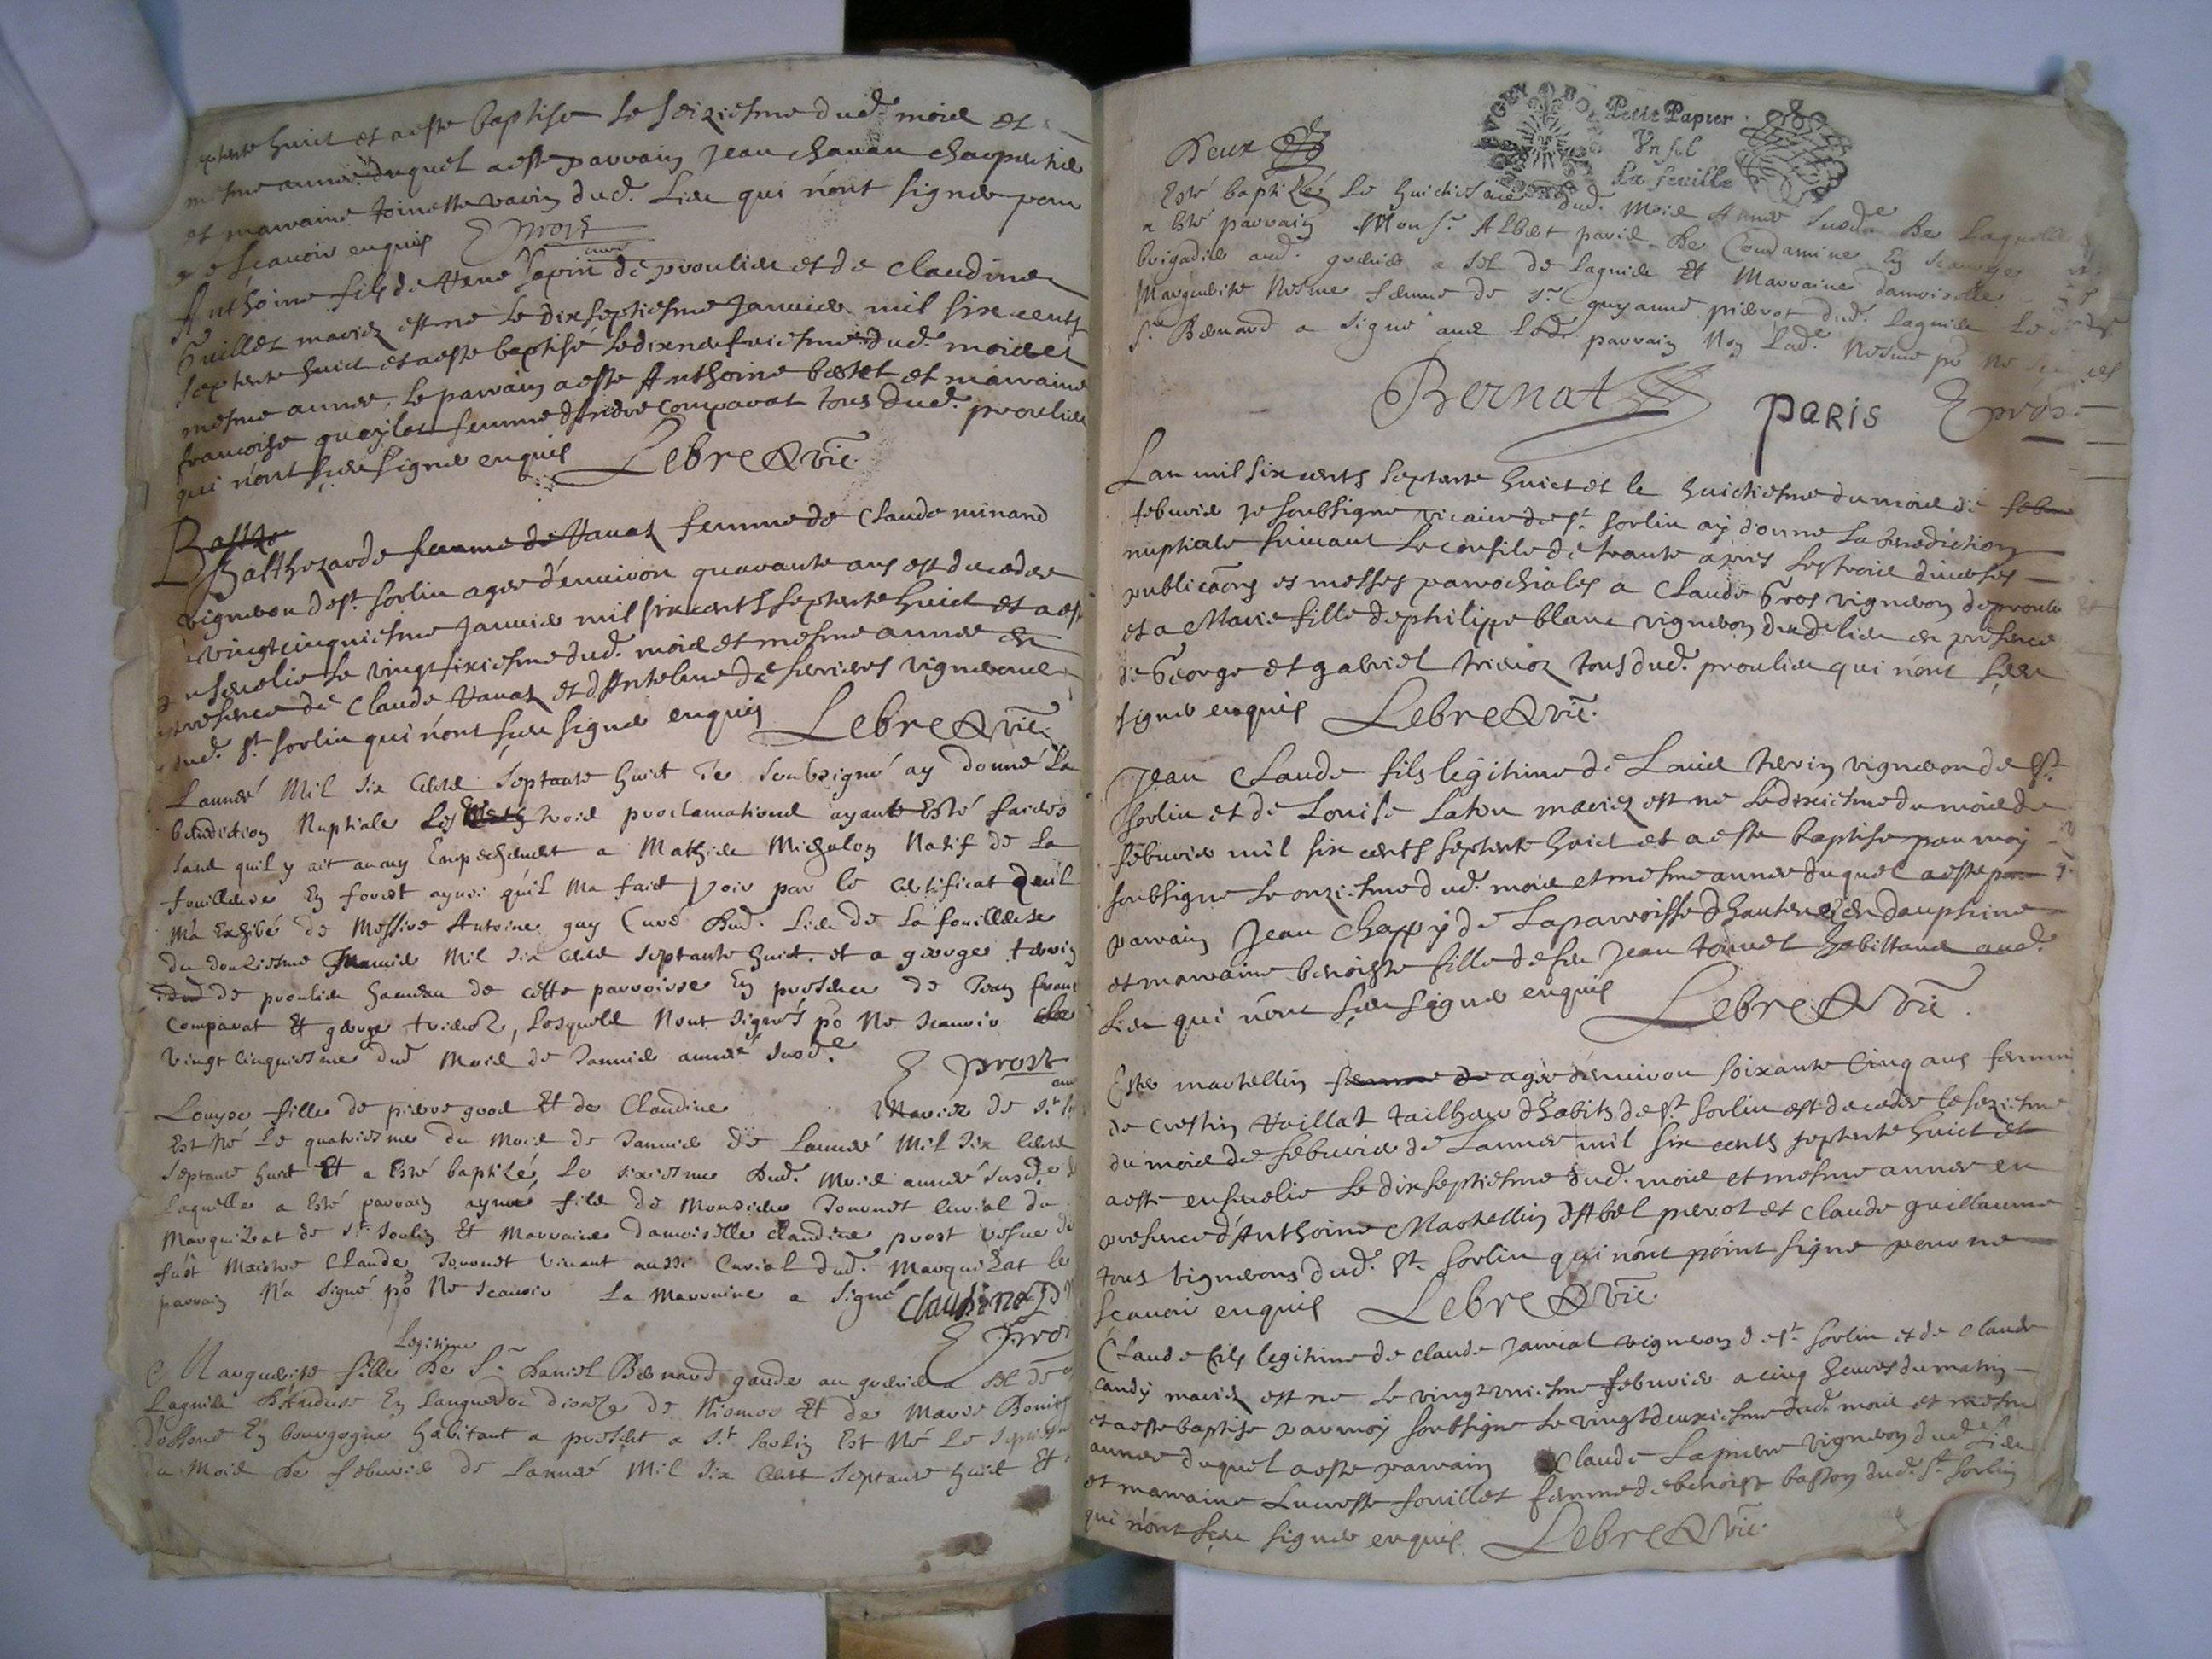 septante huict et a este baptise le seiziesme dud. mois et
mesme annee duquel a este parrain Jean chanau charpentier
et marraine toinette varin dud. lieu qui n'ont signer pour
ne scavoir enquis E prost curé
Anthoine fils de René sapin de proulieu et de claudine
Guillet mariez est né le dix septiesme Janvier mil six cents
septente huict et a este baptisé le dixneufviesme dud. mois et
mesme annee. Le parrain a este Anthoine bertet et marraine
francoise femme d'André comparat tous dud. proulieu
qui n'ont sceu signer enquis Lebret vic.
Baltze
Balthezarde femme de Ravat femme de Claude minand
vigneron de st. sorlin agee d'environ quarante ans est decedee
le vingtcinquiesme Janvier mil six cents septente huict et a este
ensevelie le vingtsixiesme dud. mois et mesme annee en
presence de Claude Ravat et d'Antelme vignerons
dud. st. sorlin qui n'ont sceu signer enquis Lebret vic.
Lanneé Mil six cents septante huict Je soubsigné ay donné La
benediction Nuptiale Les trois proclamations ayant Esté faictes
sans quil y ait aucun Empeschement a Mathieu Michalon Natif de La
fouilleuse En forest aynsi quil Ma faict voir par le certificat quil
Ma Exhibé de Messire Antoine guy Curé Dud. Lieu de La fouilleuse
du douziesme Janvier Mil six cents septante huict. et a george
de proulieu hameau de cette parroisse En presence de Jean franc
Comparat Et george trichoz, Lesquels Nont signés po Ne scavoir
vingt cinquiesme dud Mois de Janvier anneé susd.e
E prost curé
Louyse fille de pierre gros Et de Claudine Mariez de st.
Est Né Le quatriesme du Mois de Janvier de Lanneé Mil six cents
septante huict Et a Esté baptizé Le sixiesme Dud. Mois anneé susd.e
Laquelle a Esté parrain aymé fils de Monsieur Jouvnet curial du
Marquizat de st. sorlin Et Marraine damoiselle claudine prost vefve de
fust Maistre Claude Jouvnet vivant aussi Curial dud. Marquizat le
parrain Na signé po Ne scavoir La Marraine a signé claudine p
E Prost
Legitime
Marguerite fille De Sr. Daniel Bernard garde au grenier a sel de
Lagnieu D'Anduse En Languedoc dioceze de Nismes Et de Marie
dossone En bourgogne habitant a present a st. sorlin Est Né Le septiesme
du Mois De febvrier de Lanneé Mil six cents septante huict Et
Deux
Petit Papier
Un sol
La feuille
Esté baptizée Le huictiesme dud. Mois Année susd.e De Laquelle
a Esté parrain Mons.r Albert paris De Condamine En
brigadier aud. grenier a sel de Lagnieu Et Marraine damoiselle
Marguerite Nesme femme de Sr. guyanne pierrot dud. Lagnieu Le
Sr. Bernard a signé avec Led. parrain Non Lad.e Nesme po Ne
Bernat PARIS E pros
Lan mil six cents septente huict et le huictiesme du mois de
febvrier Je soubsigné vicaire de st. sorlin ay donné La benediction
nuptiale suivant Le consile de trante apres Les trois diverses
publicaons es messes parrochiales a Claude Gros vigneron de proulieu
et a Marie fille de philippe blanc vigneron dud. lieu en presence
de George et gabriel trichoz tous dud. proulieu qui n'ont sceu
signer enquis Lebret vic.
Jean Claude fils legitime de Louis vigneron de st.
sorlin et de Louise Laton mariez est né le dixiesme du mois de
febvrier mil six cents septente huict et a este baptisé par moy
soubsigne Le onziesme dud. mois et mesme annee duquel a este
parrain Jean Chappy de La parroisse en dauphiné
et marraine benoiste fille de feu Jean touvet habittant aud.
Lieu qui n'ont sceu signer enquis Lebret vic.
martellin femme de agée d'environ soixante cinq ans femme
de crestin Vaillat tailheur d'habits de st. sorlin est decedée le seziesme
du mois de febvrier de Lannee mil six cents septente huict et
a este ensevelie Le dix septiesme dud. mois et mesme annee en
presence d'Anthoine Martellin d'Abel pierrot et Claude guillaume
tous vignerons dud. st. sorlin qui n'ont point signe pour ne
scavoir enquis Lebret vic.
Claude fils legitime de claude Janriat vigneron de st. sorlin et de claude
candy mariez est ne le vingtuniesme febvrier a cinq heures du matin
et a este baptisé par moy soubsigné Le vingtdeuxiesme dud. mois et mesme
annee duquel a este parrain Claude Lapierre vigneron dud. Lieu
et marraine Lucresse fouillet femme de benoist basson dud. st. sorlin
qui n'ont sceu signer enquis. Lebret vic.